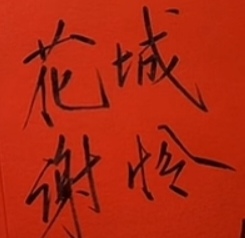 花城
谢怜